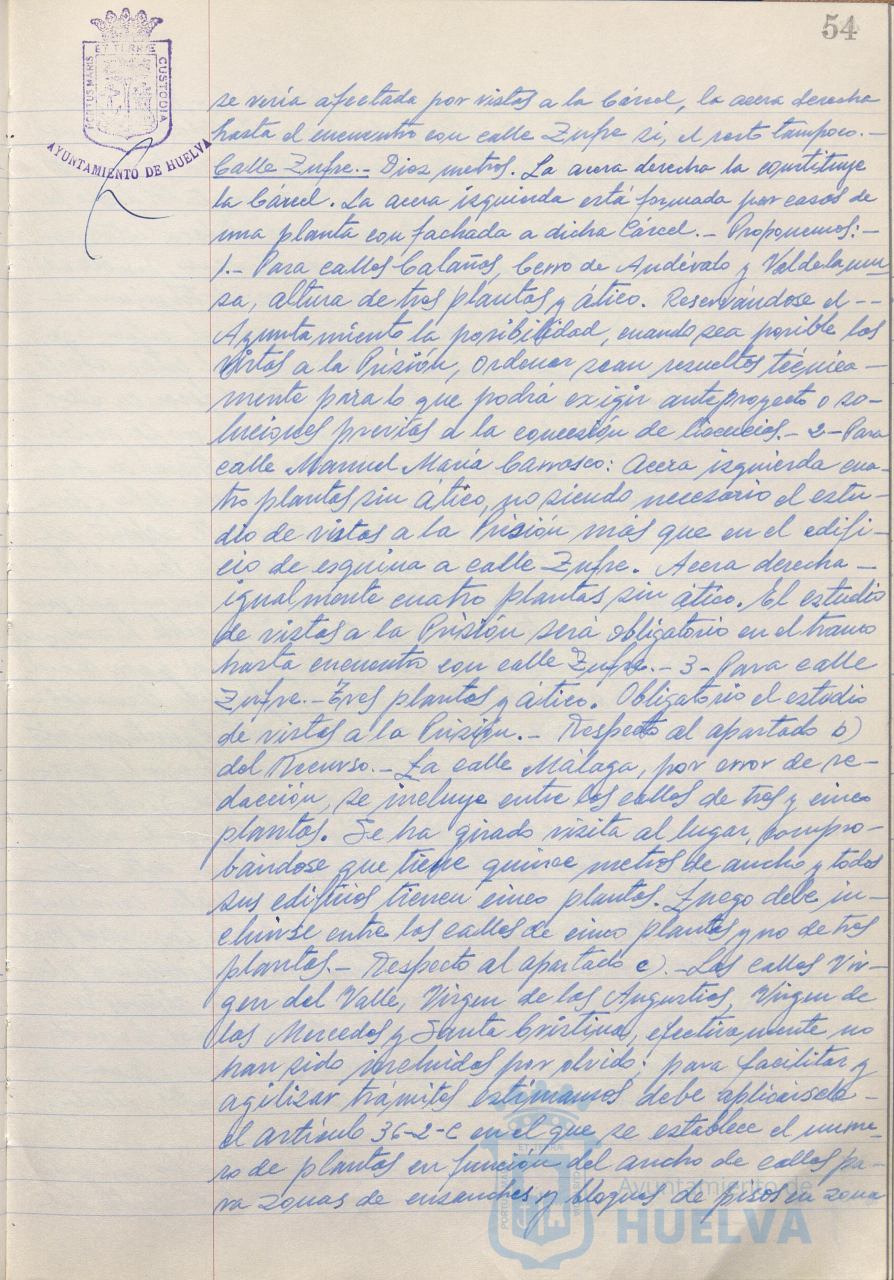 54
PORTUS MARIS
ET TERRE
CUSTODIA
AYUNTAMIENTO DE HUELVA
se vería afectada por vistas a la Cárcel, la acera derecha
hasta el encuentro con calle Zufre si, el resto tampoco.-
Calle Zufre.- Diez metros. La acera derecha la constituye
la Cárcel. La acera izquierda está formada por casas de
una planta con fachada a dicha Cárcel.- Proponemos:-
1.- Para calles Calañas, Cerro de Andévalo y Valdelamu-
sa, altura de tres plantas y ático. Reservándose el --
Ayuntamiento la posibilidad, cuando sea posible las
vistas a la Prisión, ordenar sean resueltas técnica-
mente para lo que podrá exigir anteproyecto o so-
luciones previas a la concesión de licencias.- 2- Para
calle Manuel María Carrasco: Acera izquierda cua-
tro plantas sin ático, no siendo necesario el estu-
dio de vistas a la Prisión más que en el edifi-
cio de esquina a calle Zufre. Acera derecha-
igualmente cuatro plantas sin ático. El estudio
de vistas a la Prisión será obligatorio en el tramo
hasta encuentro con calle Zufre.- 3- Para calle
Zufre.- Tres plantas y ático. Obligatorio el estudio
de vistas a la Prisión.- Respecto al apartado b)
del Recurso.- La calle Málaga, por error de re-
dacción, se incluye entre las calles de tres y cinco
plantas. Se ha girado visita al lugar, compro-
bándose que tiene quince metros de ancho y todos
sus edificios tienen cinco plantas. Luego debe in-
cluirse entre las calles de cinco plantas y no de tres
plantas.- Respecto al apartado c).- Las calles Vir-
gen del Valle, Virgen de las Angustias, Virgen de
las Mercedes y Santa Cristina, efectivamente no
han sido incluidas por olvido; para facilitar y
agilizar trámites estimamos debe aplicársele-
el artículo 36-2-C en el que se establece el núme-
ro de plantas en función del ancho de calles pa-
ra zonas de ensanches y bloques de pisos en zona
Ayuntamiento de
HUELVA